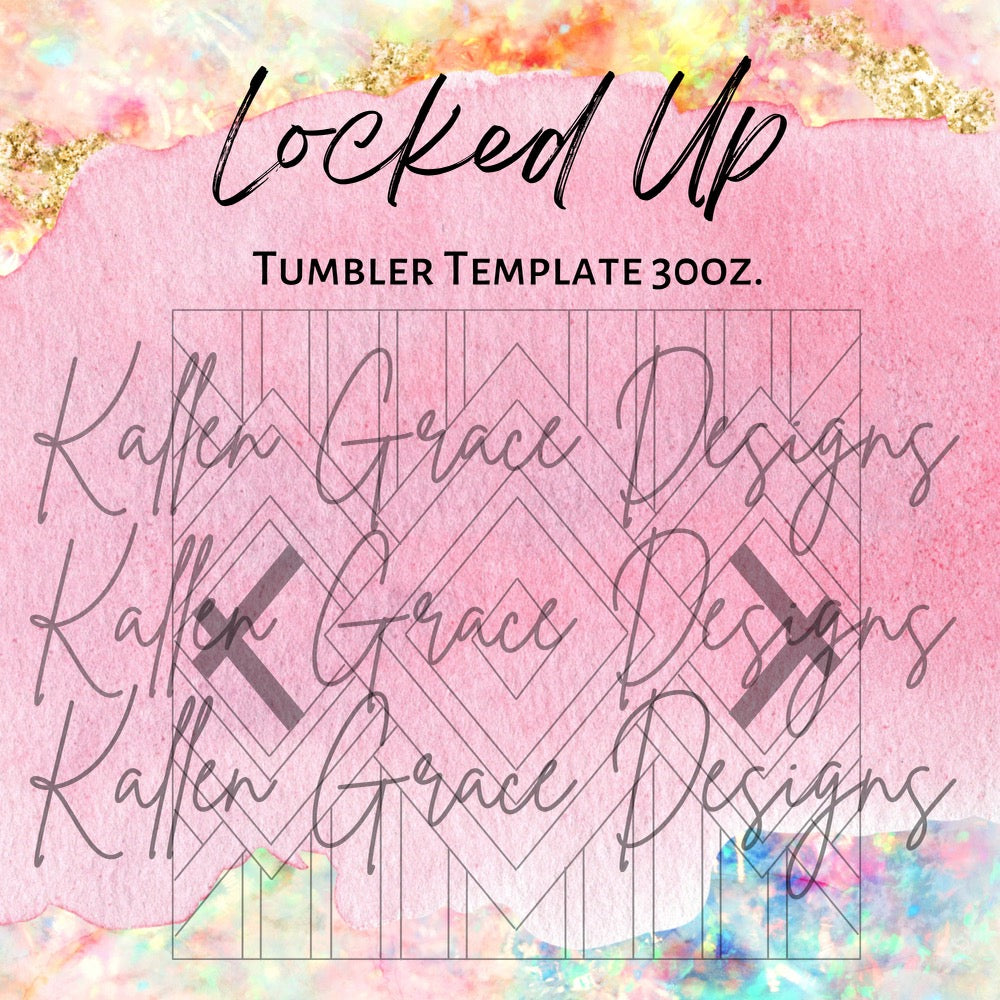 Locked Up
Tumbler Template 30oz.
Kallen Grace Designs
Kallen Grace Designs
Kallen Grace Designs